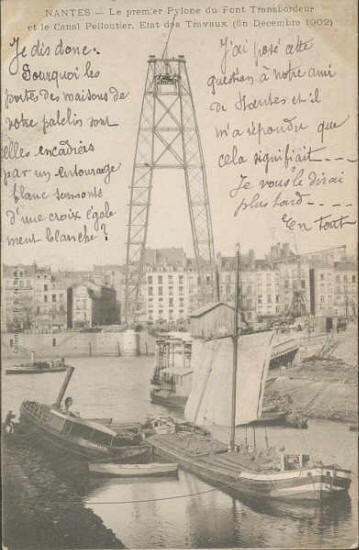 NANTES — Le premier Pylone du Pont Transbordeur
et le Canal Pelloutier. Etat des Travaux (fin Décembre 1902)
Je dis donc.
Pourquoi les
portes des maisons de
votre patelin sont
elles encadrées
par un entourage
blanc surmonté
d'une croix égale
ment blanche ?
J'ai posé cette
question à notre ami
de Nantes et il
m'a répondu que
cela signifiait ----
Je vous le dirai
plus tard - - - -
En tout